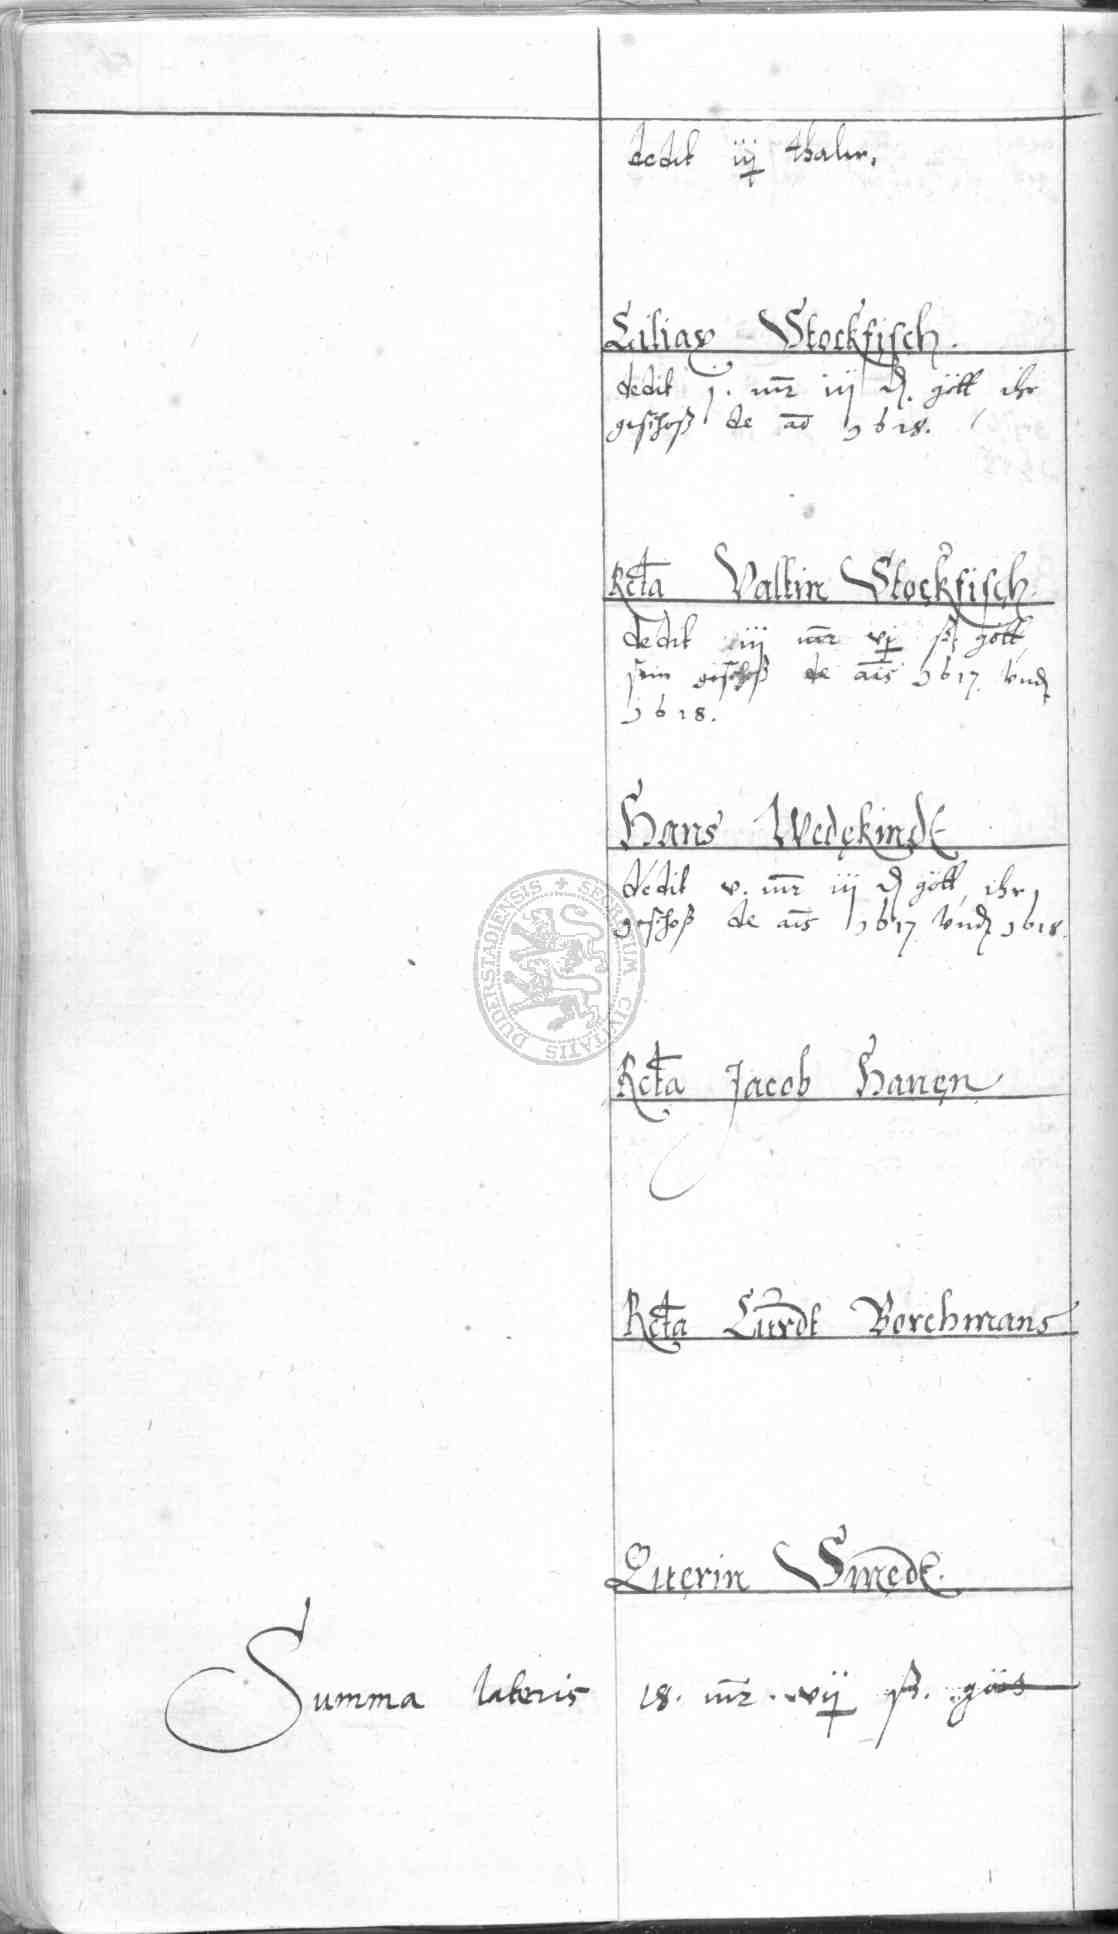 dedit iij thaler.
Ciliax Stockfisch.
dedit j. mr iij d. gött ihr
geschoß de ao 1618.
Rcta Valtin Stockfisch
dedit iij mr vj ß gött
sein geschoß de ais 1617 vnd
1618.
Hans Wedekindt
dedit v. mr iij d gött ihr
geschoß de ais 1617 vnd 1618.
Rcta Jacob Hanen
Rcta Curdt Borchmans
Querin Smedt.
Summa lateris 18. mr. vij ß. gött
SECRETUM CIVITATIS DUDERSTADIENSIS